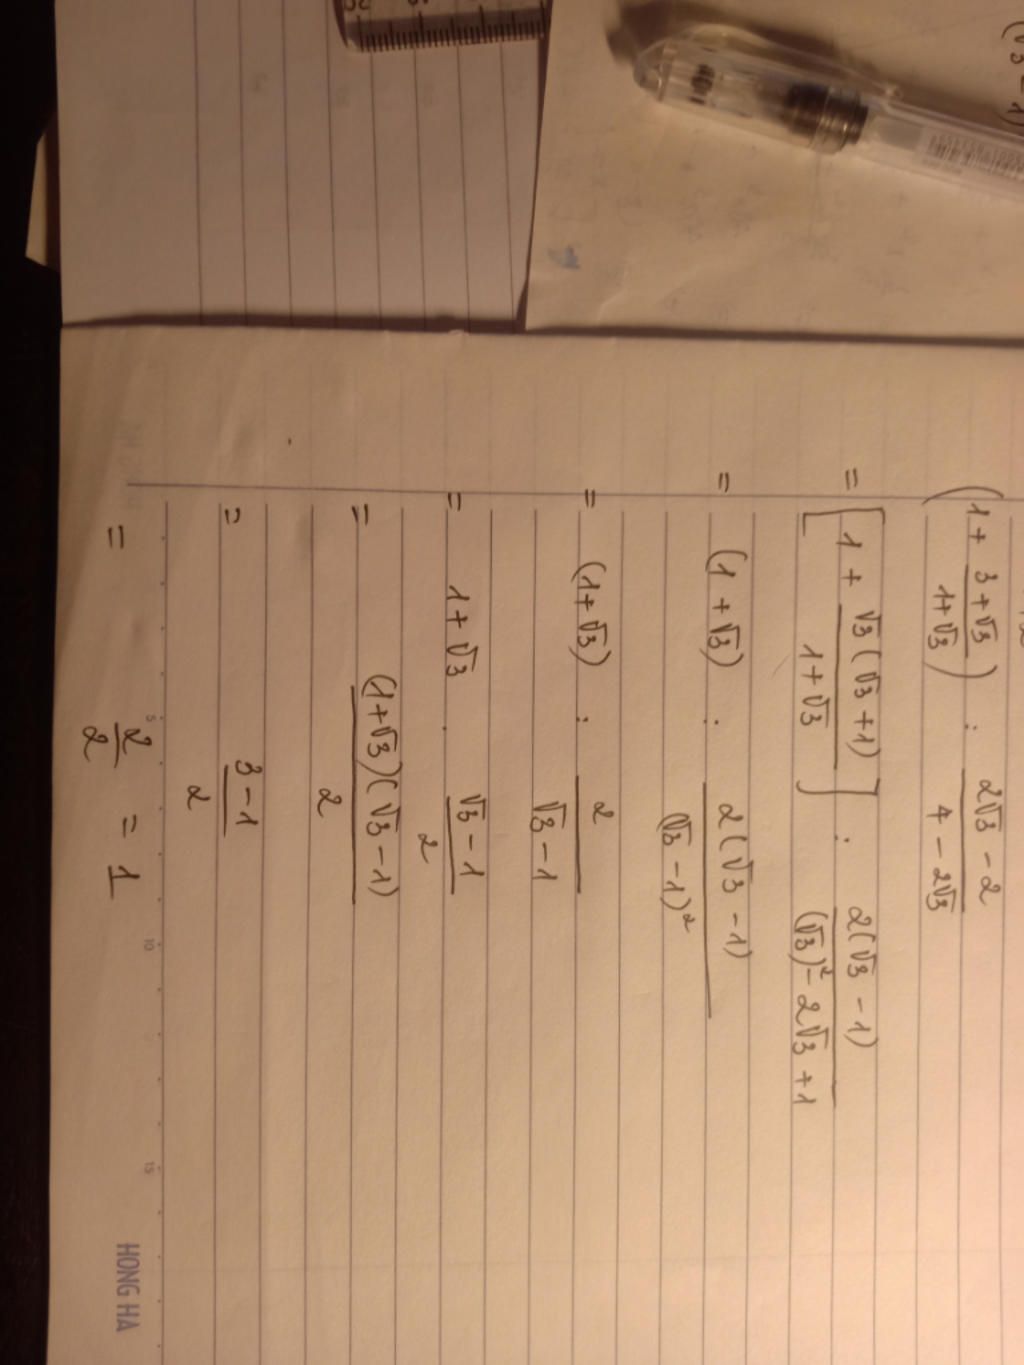 (√3 - 1)
(1 + (3+√3)/(1+√3)) : (2√3 - 2)/(4 - 2√3)
= [1 + √3(√3+1)/(1+√3)] : 2(√3 - 1)/((√3)² - 2√3 + 1)
= (1 + √3) : 2(√3 - 1)/(√3 - 1)²
= (1+√3) : 2/(√3 - 1)
= 1 + √3 . (√3 - 1)/2
= (1+√3)(√3 - 1)/2
= (3 - 1)/2
= 2/2 = 1
5 10 15
HONG HA